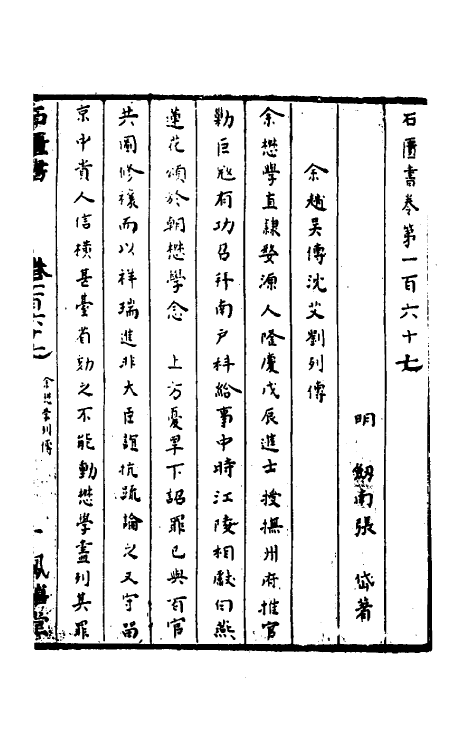 石匱書卷第一百六十七
明 劒南張 岱著
余趙吳傅沈艾劉列傳
余懋學直隸婺源人隆慶戊辰進士授撫州府推官
勦巨寇有功召拜南戶科給事中時江陵相獻白燕
蓮花頌於朝懋學念 上方憂旱下詔罪己與百官
共圖修禳而以祥瑞進非大臣誼抗疏論之又守畱
京中貴人信橫甚臺省劾之不能動懋學盡列其罪
石匱書 卷一百六十七 余懋學列傳 一 鳳嬉堂